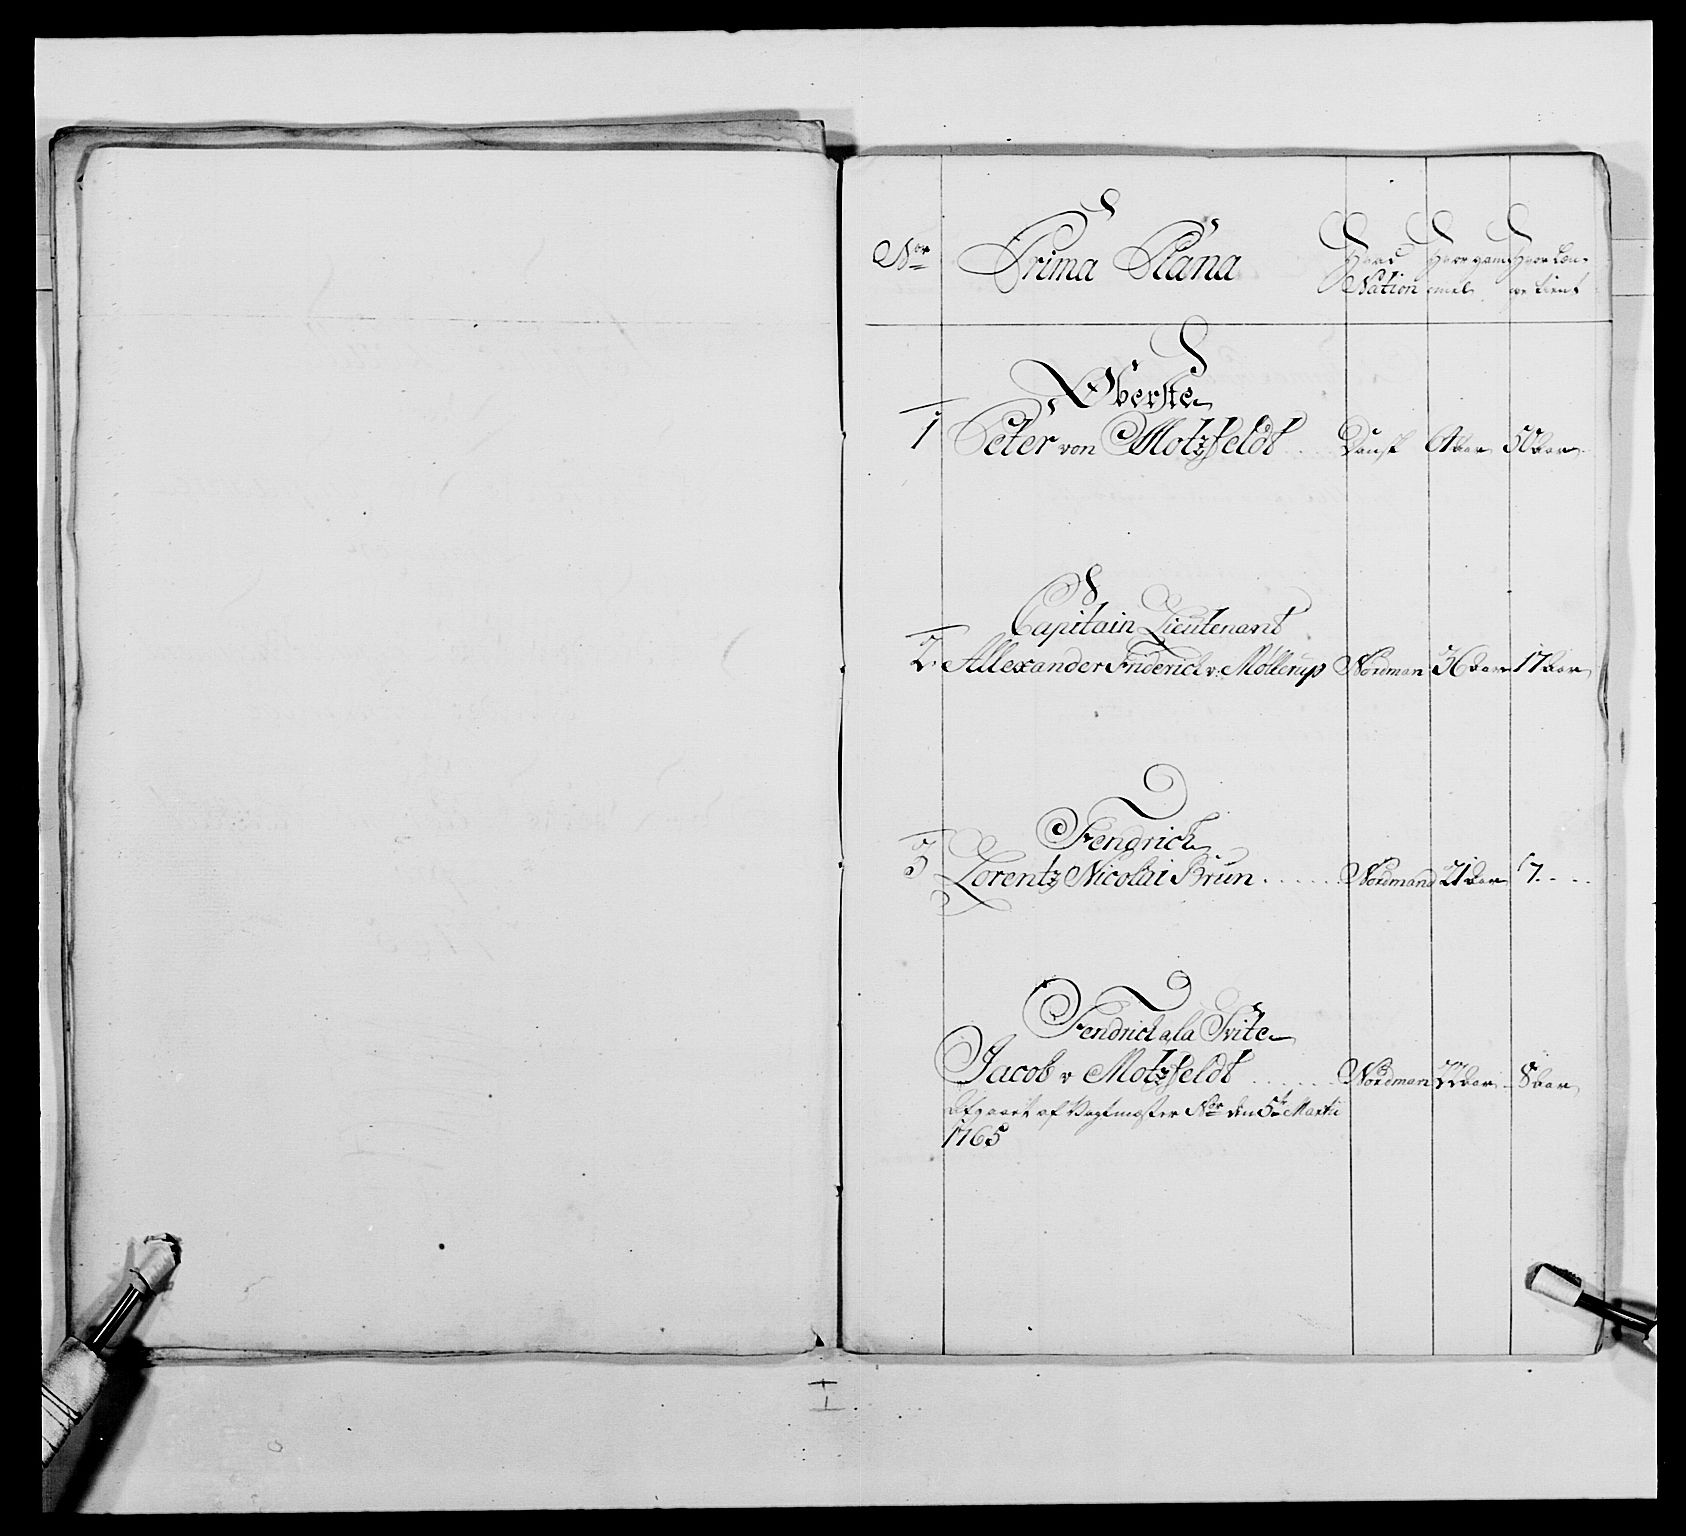 No Prima Plana Hvad Nation Hvor gammel Hvor længe tient
Øberste
1 Peter von Motzfeldt Dansk 61 Aar 50 Aar
Capitain Lieutenant
2. Allexander Friderich v: Møllerup Nordman 36 Aar 17 Aar
Fendrich
3 Lorentz Nicolai Brun Nordmand 21 Aar 7
Fendrich a la Svite
Jacob v Motzfeldt Nordman 22 Aar 8 Aar
Afgaaet af Vagtmæster No den 5te Martii
1765